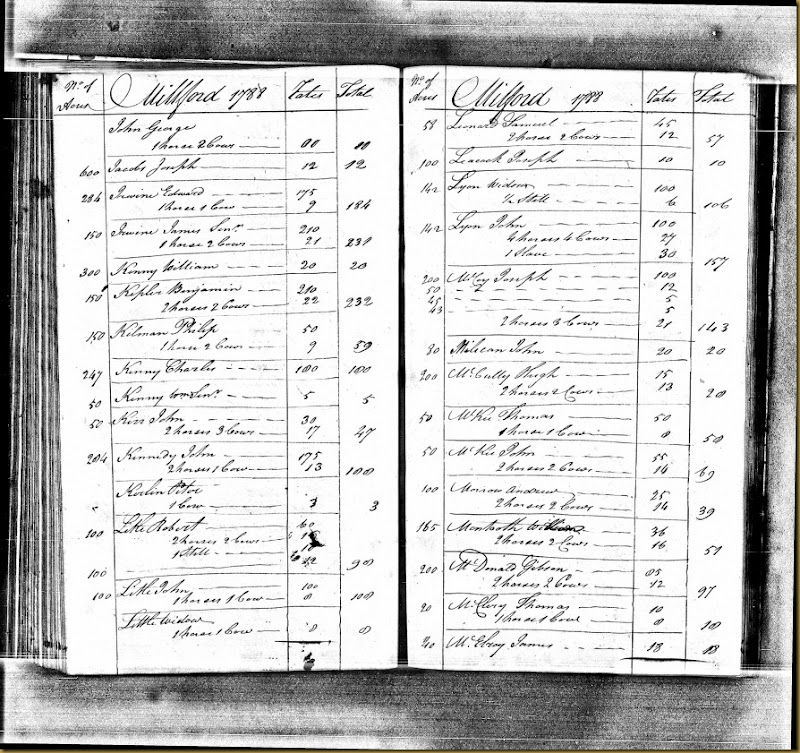 No. of Acres Millford 1788 Rates Total
John George
1 horse 2 Cows
600 Jacobs Joseph 12 12
284 Irwine Edward 175
1 horse 1 Cow 9 184
150 Irwine James Senr. 210
1 horse 2 Cows 21 231
300 Kenny William 20 20
150 Kepler Benjamin 210
2 horses 2 Cows 22 232
150 Kelman Philip 50
1 horse 2 Cows 9 59
247 Kenny Charles 100 100
50 Kenny Senr. 5 5
50 Kerr John 30
2 horses 3 Cows 17 47
204 Kennedy John 175
2 horses 1 Cow 13
Kerlin
1 Cow 3 3
100 Litle Robert 60
2 horses 2 Cows
1 Still
100
100 Litle John 100
1 horse 1 Cow 8 108
Little Widow
1 horse 1 Cow 8 8
No. of Acres Milford 1788 Rates Total
58 Leonard Samuel 45
2 horse 2 Cows 12 57
100 Leacock Joseph 10 10
142 Lyon Widow 100
1/2 Still 6 106
142 Lyon John 100
4 horses 4 Cows 27
1 Slave 30 157
200 McCoy Joseph 100
50 12
45 5
43 5
2 horses 3 Cows 21 143
30 Milican John 20 20
200 McCully Hugh 15
2 horses 2 Cows 13 28
50 McKee Thomas 50
1 horse 1 Cow 8 58
50 McKee John 55
2 horses 2 Cows 14 69
100 Morrow Andrew 25
2 horses 2 Cows 14 39
165 William 36
2 horses 2 Cows 16
200 McDonald Gibson 85
2 horses 2 Cows 12 97
20 McClery Thomas 10
1 horse 1 Cow 8 18
40 McElroy James 18 18